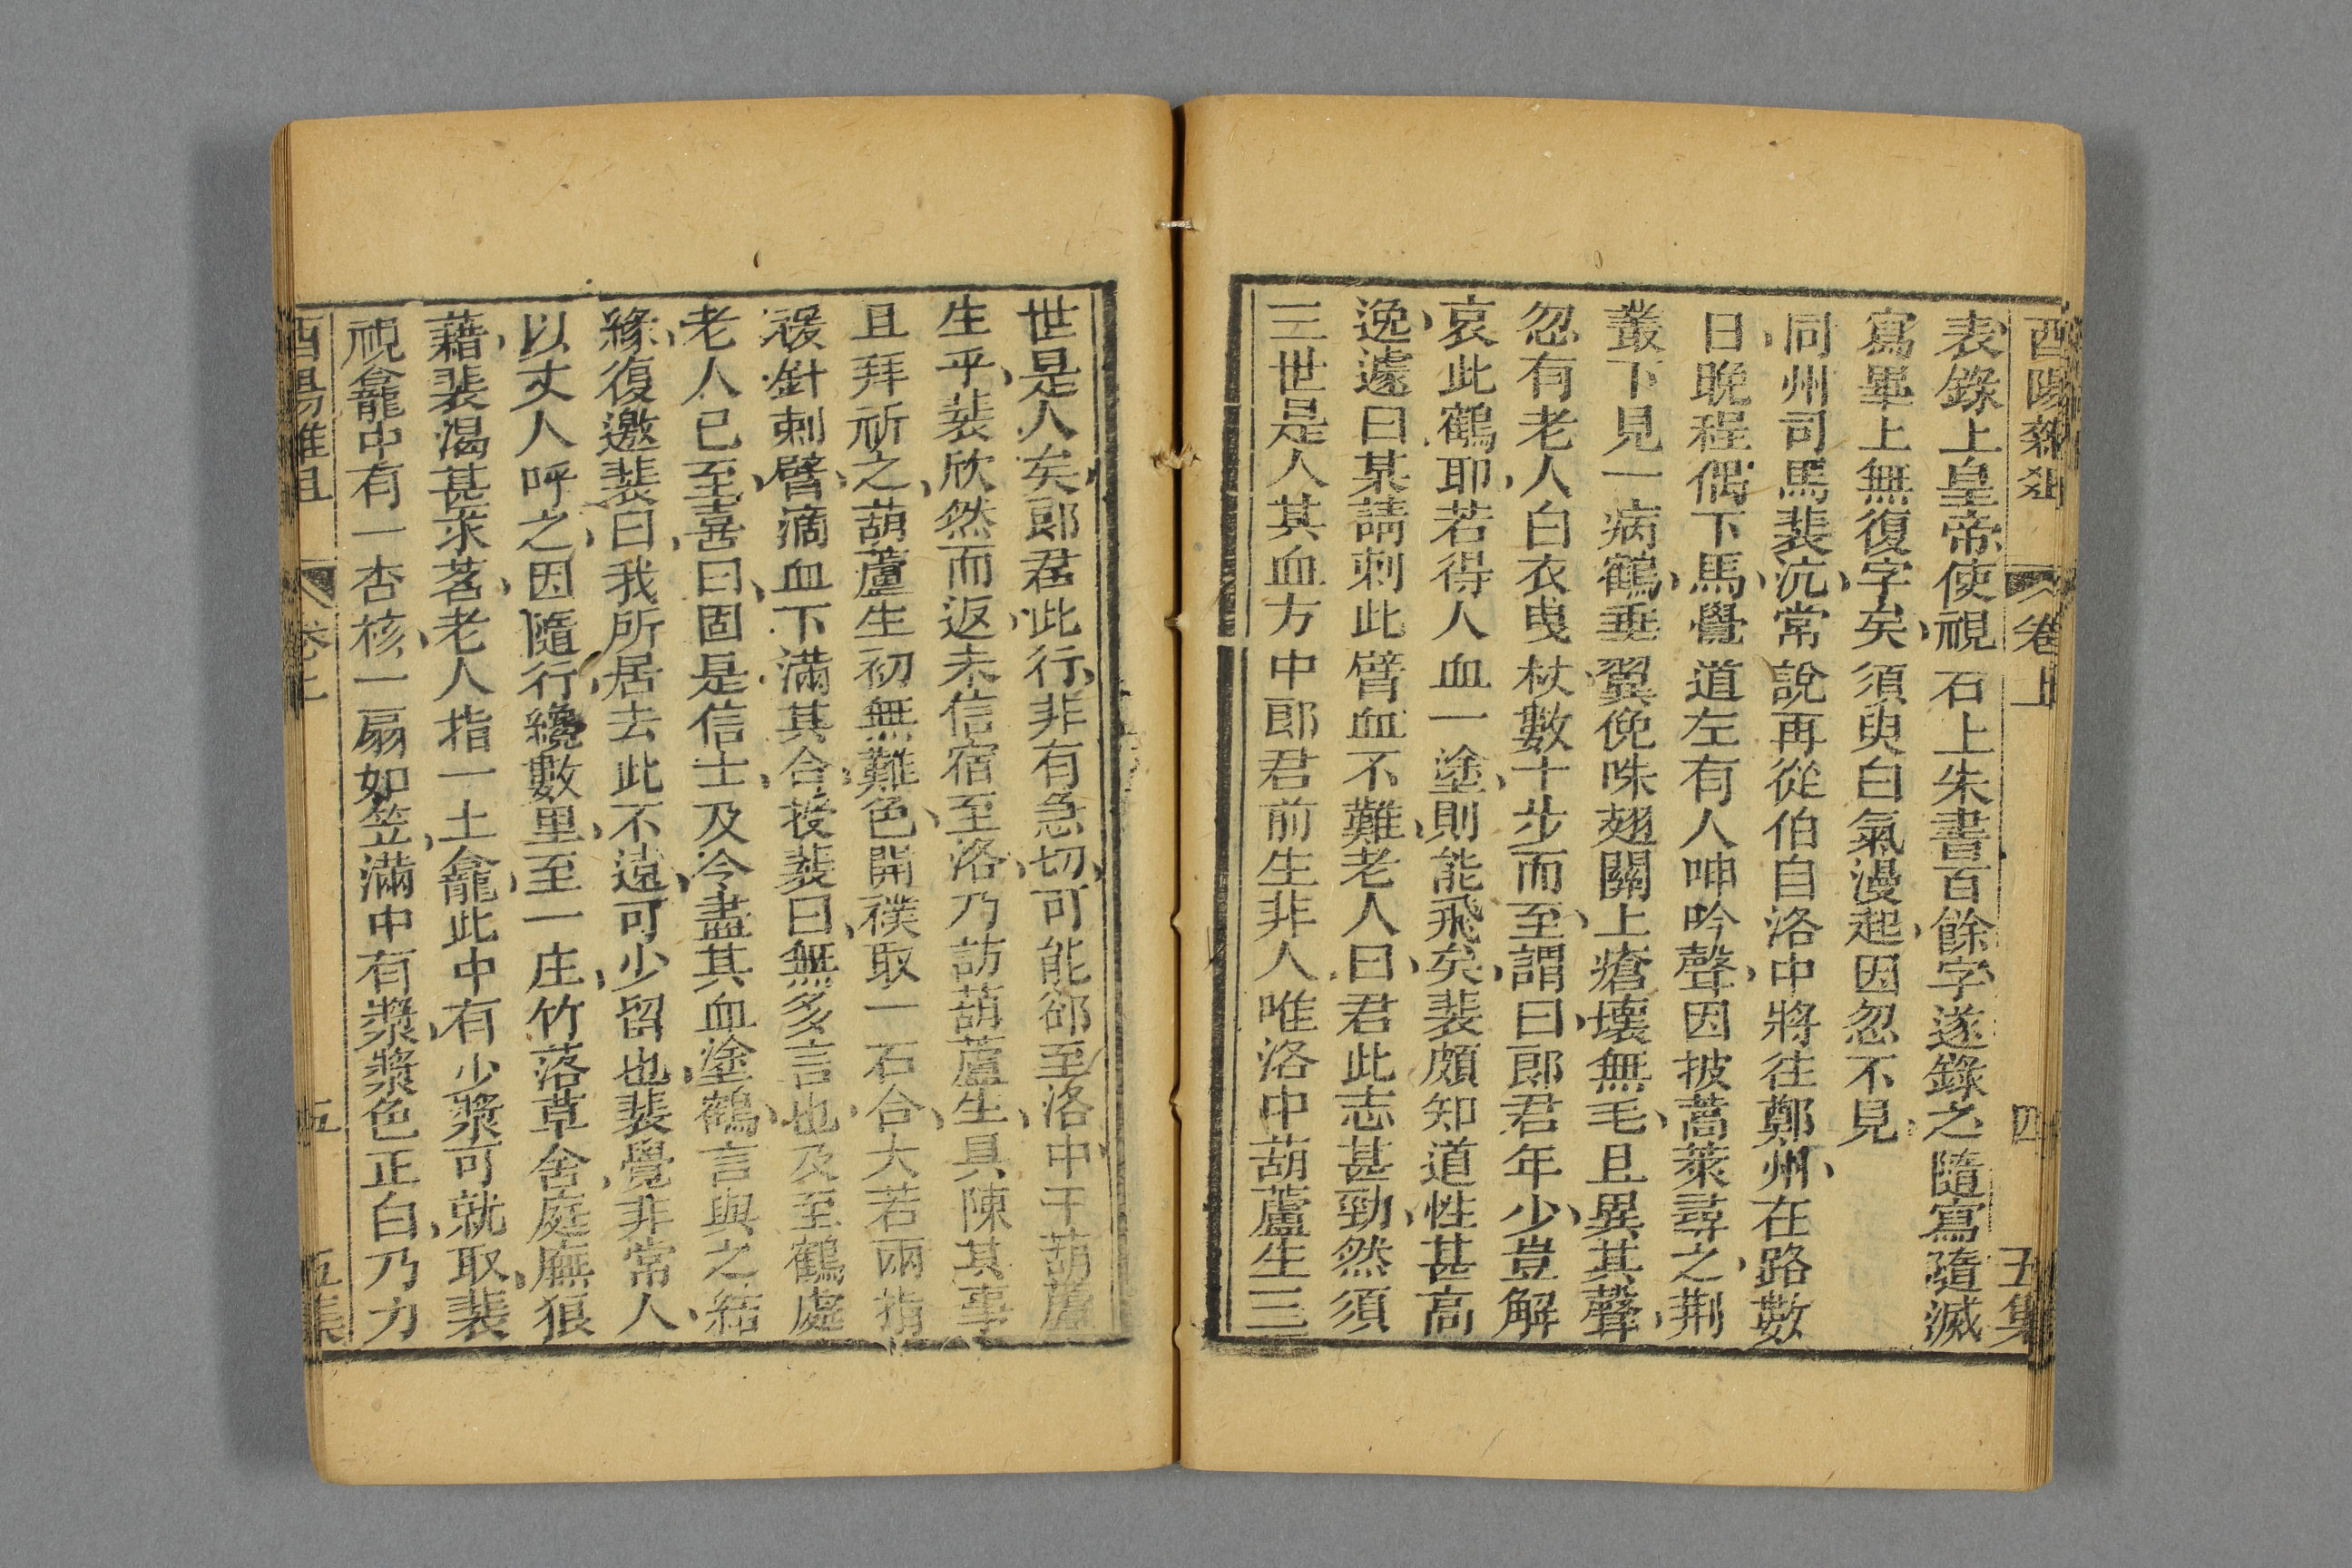 酉陽雜俎 卷上 四 五集
表錄上皇帝使視石上朱書百餘字遂錄之隨寫隨滅
寫畢上無復字矣須臾白氣漫起因忽不見
同州司馬裴沆常說再從伯自洛中將往鄭州在路數
日晚程偶下馬覺道左有人呻吟聲因披蒿萊尋之荆
叢下見一病鶴垂翼俛咮翅關上瘡壞無毛且異其聲
忽有老人白衣曳杖數十步而至謂曰郎君年少豈解
哀此鶴耶若得人血一塗則能飛矣裴頗知道性甚高
逸遽曰某請刺此臂血不難老人曰君此志甚勁然須
三世是人其血方中郎君前生非人唯洛中葫蘆生三
世是人矣郎君此行非有急切可能郤至洛中干葫蘆
生乎裴欣然而返未信宿至洛乃訪葫蘆生具陳其事
且拜祈之葫蘆生初無難色開襆取一石合大若兩指
援針刺臂滴血下滿其合授裴曰無多言也及至鶴處
老人已至喜曰固是信士及令盡其血塗鶴言與之結
緣復邀裴曰我所居去此不遠可少留也裴覺非常人
以丈人呼之因隨行纔數里至一庄竹落草舍庭廡狼
藉裴渴甚求茗老人指一土龕此中有少漿可就取裴
視龕中有一杏核一扇如笠滿中有漿漿色正白乃力
酉陽雜俎 卷上 五 五集